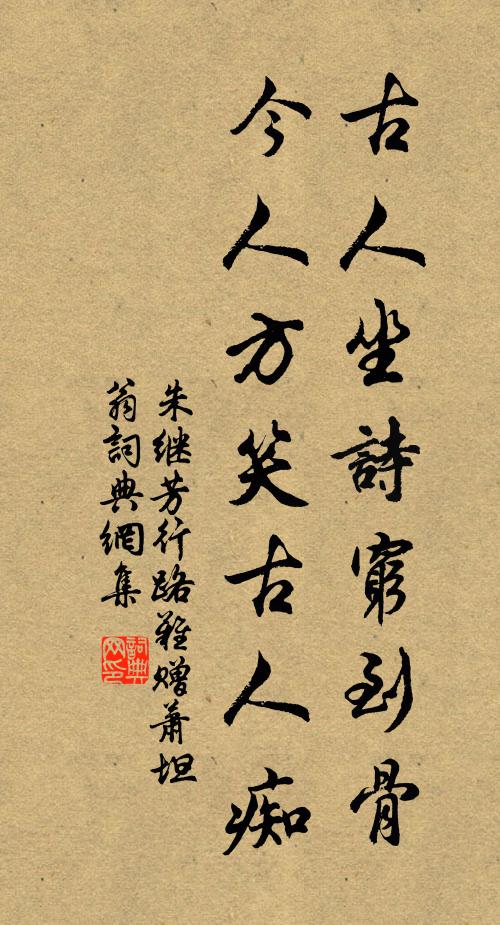 古人坐詩窮到骨
今人方笑古人痴
朱继芳行路难赠萧坦
翁詞典網集
詞典网印